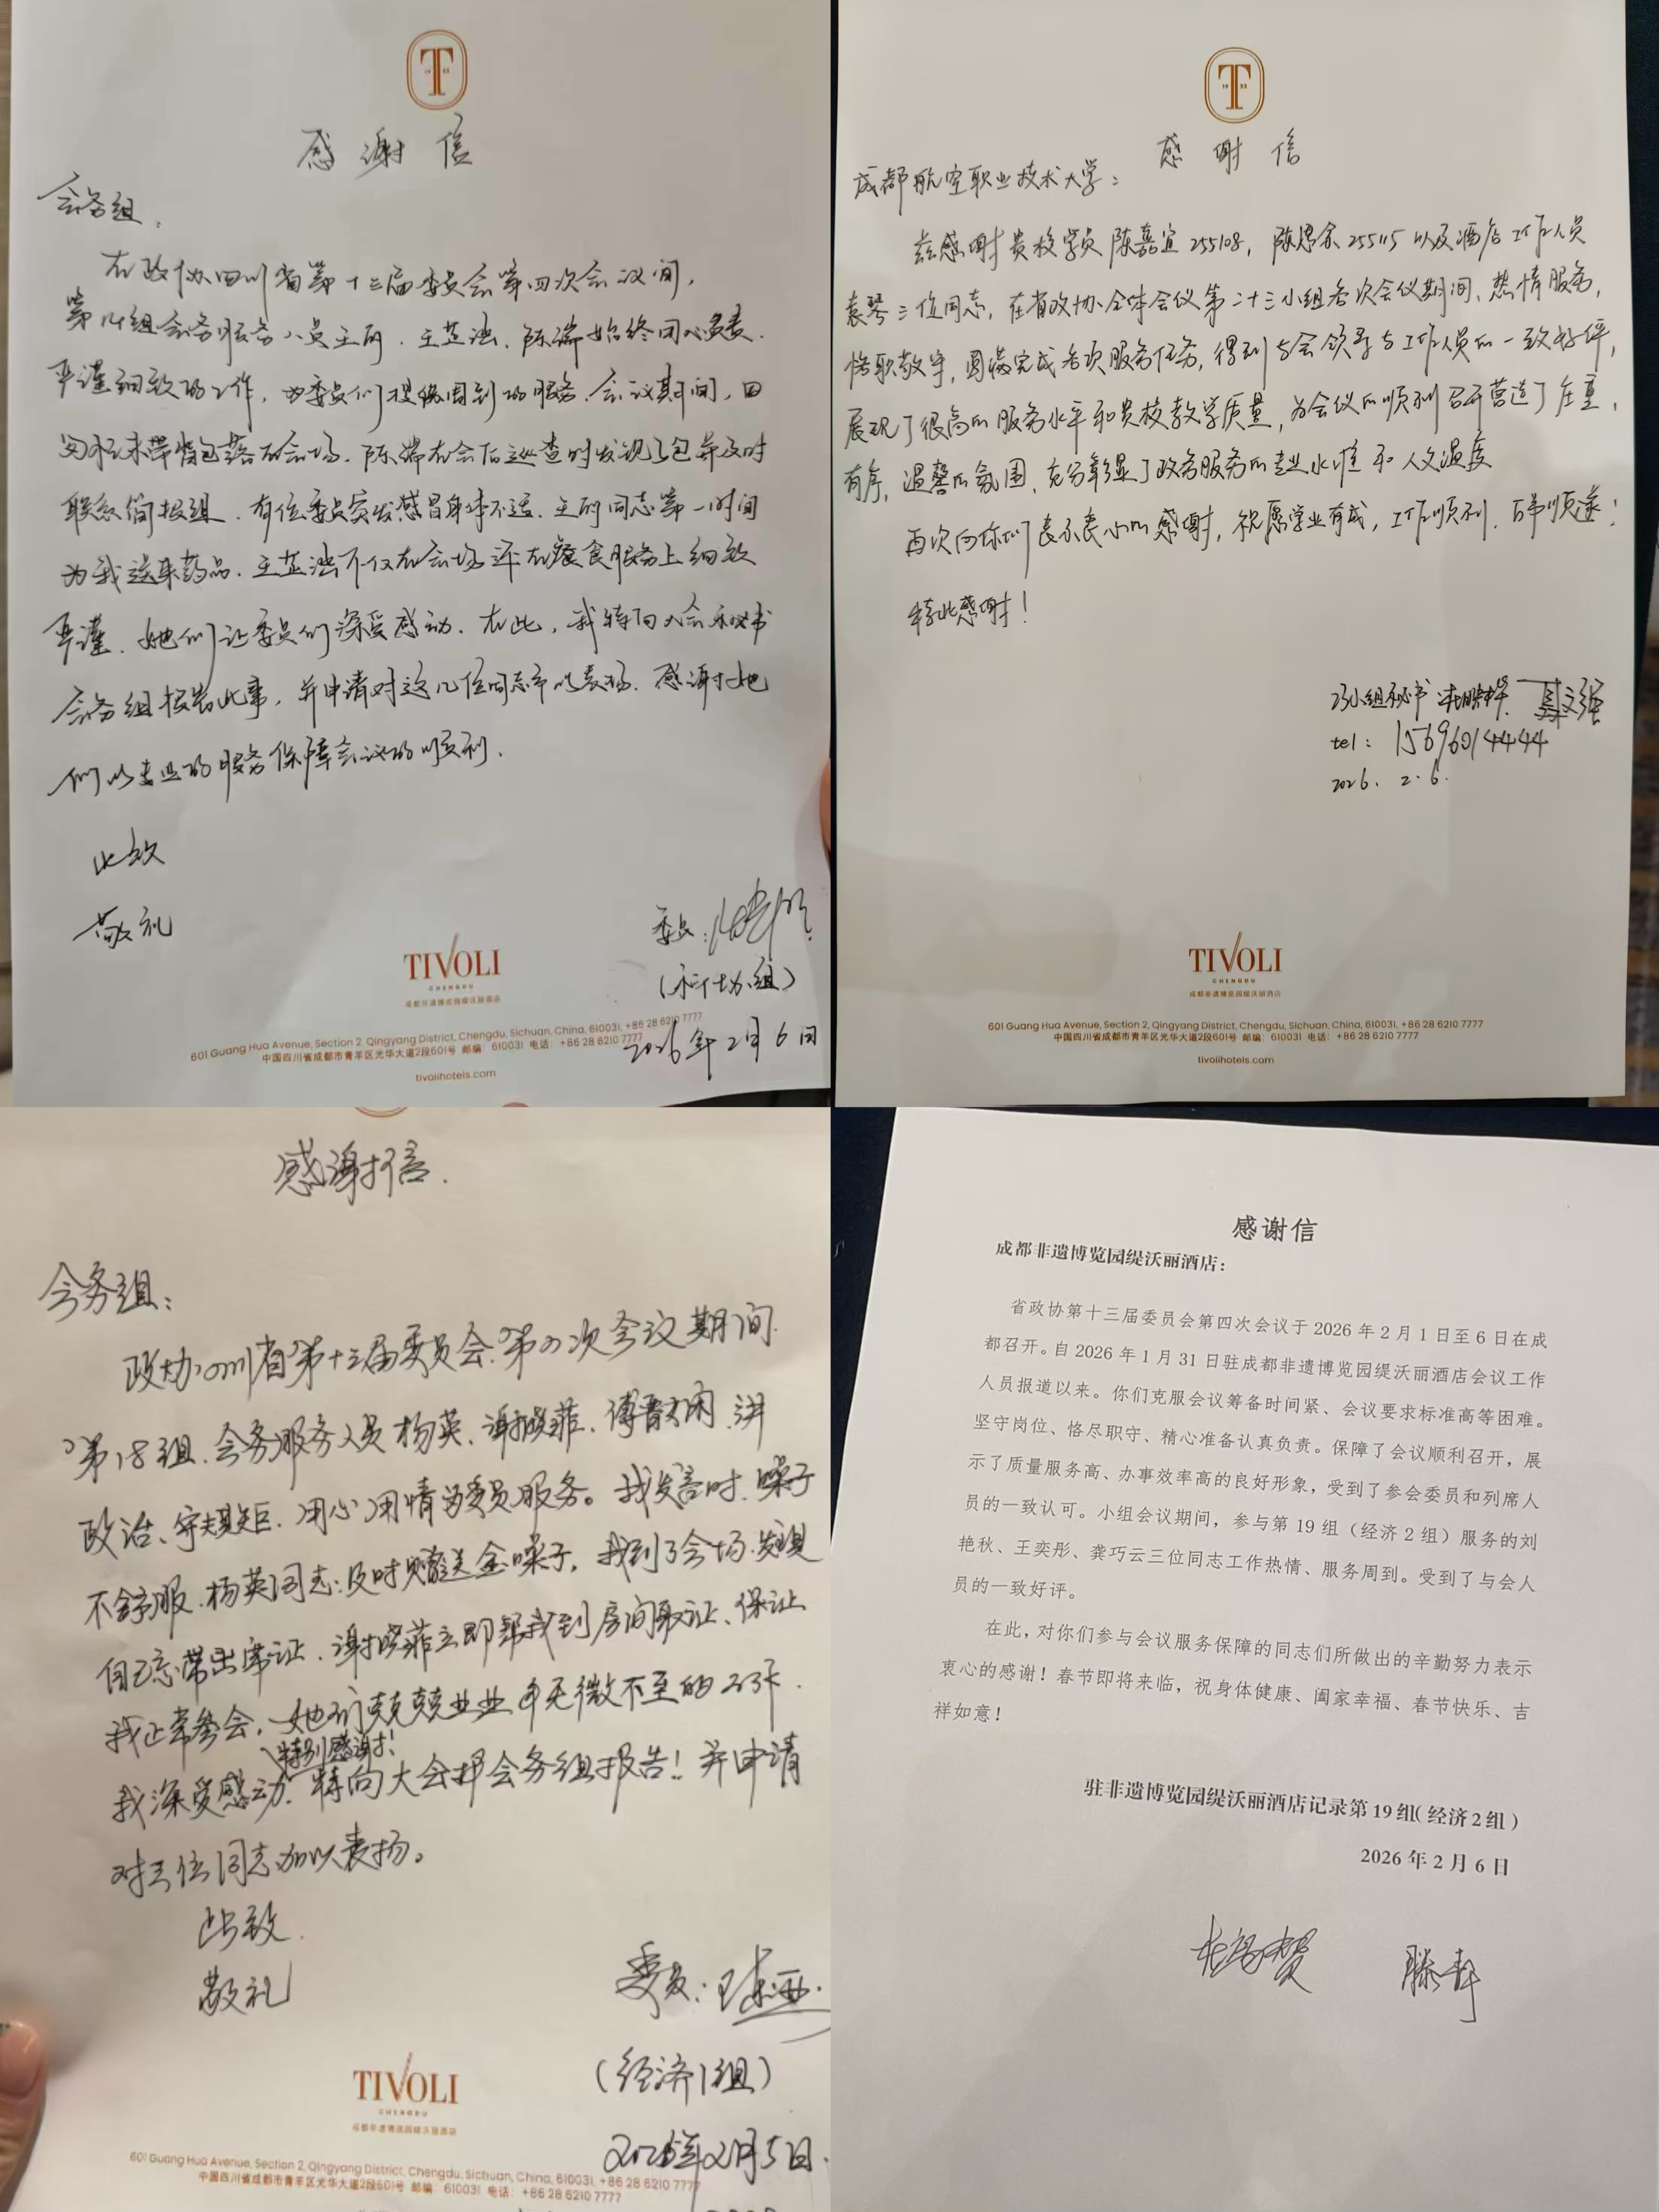 T
感谢信
会务组:
在政协四川省第十三届委员会第四次会议间,
第14组会务服务人员王丽、王芷浊、陈端始终用心负责、
严谨细致的工作,为委员们提供周到的服务。会议期间,因
陈端在会后巡查时发现了包并及时
联系简报组。有位委员突发感冒身体不适,王丽同志第一时间
为我送来药品。王芷浊不仅在会场还在餐食服务上细致
严谨。她们让委员们深受感动。在此,我特向大会秘书
会务组报告此事,并申请对这几位同志予以表扬。感谢她
们以专业的服务保障会议的顺利。
此致
敬礼
委员:
(科协组)
2026年2月6日
TIVOLI
CHENGDU
成都非遗博览园缇沃丽酒店
601 Guang Hua Avenue, Section 2, Qingyang District, Chengdu, Sichuan, China, 610031, +86 28 6210 7777
中国四川省成都市青羊区光华大道2段601号 邮编:610031 电话:+86 28 6210 7777
tivolihotels.com
T
感谢信
成都航空职业技术大学:
兹感谢贵校学员陈嘉宜255108,陈思余255115以及酒店工作人员
袁琴三位同志,在省政协全体会议第二十三小组各次会议期间,热情服务,
恪职敬守,圆满完成各项服务任务,得到与会领导与工作人员的一致好评,
展现了很高的服务水平和贵校教学质量,为会议的顺利召开营造了庄重、
有序、温馨的氛围,充分彰显了政务服务的专业水准和人文温度
再次向你们表示衷心的感谢,祝愿学业有成,工作顺利,百事顺遂!
特此感谢!
23小组秘书
tel: 15696014444
2026. 2. 6.
TIVOLI
CHENGDU
成都非遗博览园缇沃丽酒店
601 Guang Hua Avenue, Section 2, Qingyang District, Chengdu, Sichuan, China, 610031, +86 28 6210 7777
中国四川省成都市青羊区光华大道2段601号 邮编:610031 电话:+86 28 6210 7777
tivolihotels.com
感谢信.
会务组:
政协四川省第十三届委员会第四次会议期间
第18组、会务服务人员杨英、谢晓菲、傅 讲
政治、守规矩、用心用情为委员服务。我发言时、嗓子
不舒服、杨英同志及时赠送金嗓子,我到了会场发现
自己忘带出席证、谢晓菲立即帮我到房间取证、保证
我正常参会,她们兢兢业业 无微不至的
特别感谢!
我深受感动,特向大会 会务组报告!并申请
对三位同志加以表扬。
此致
敬礼
委员:
(经济1组)
2026年2月5日.
TIVOLI
CHENGDU
成都非遗博览园缇沃丽酒店
601 Guang Hua Avenue, Section 2, Qingyang District, Chengdu, Sichuan, China, 610031, +86 28 6210 7777
中国四川省成都市青羊区光华大道2段601号 邮编:610031 电话:+86 28 6210 7777
感谢信
成都非遗博览园缇沃丽酒店:
省政协第十三届委员会第四次会议于2026年2月1日至6日在成
都召开。自2026年1月31日驻成都非遗博览园缇沃丽酒店会议工作
人员报道以来。你们克服会议筹备时间紧、会议要求标准高等困难。
坚守岗位、恪尽职守、精心准备认真负责。保障了会议顺利召开,展
示了质量服务高、办事效率高的良好形象,受到了参会委员和列席人
员的一致认可。小组会议期间,参与第19组(经济2组)服务的刘
艳秋、王奕彤、龚巧云三位同志工作热情、服务周到。受到了与会人
员的一致好评。
在此,对你们参与会议服务保障的同志们所做出的辛勤努力表示
衷心的感谢!春节即将来临,祝身体健康、阖家幸福、春节快乐、吉
祥如意!
驻非遗博览园缇沃丽酒店记录第19组(经济2组)
2026年2月6日